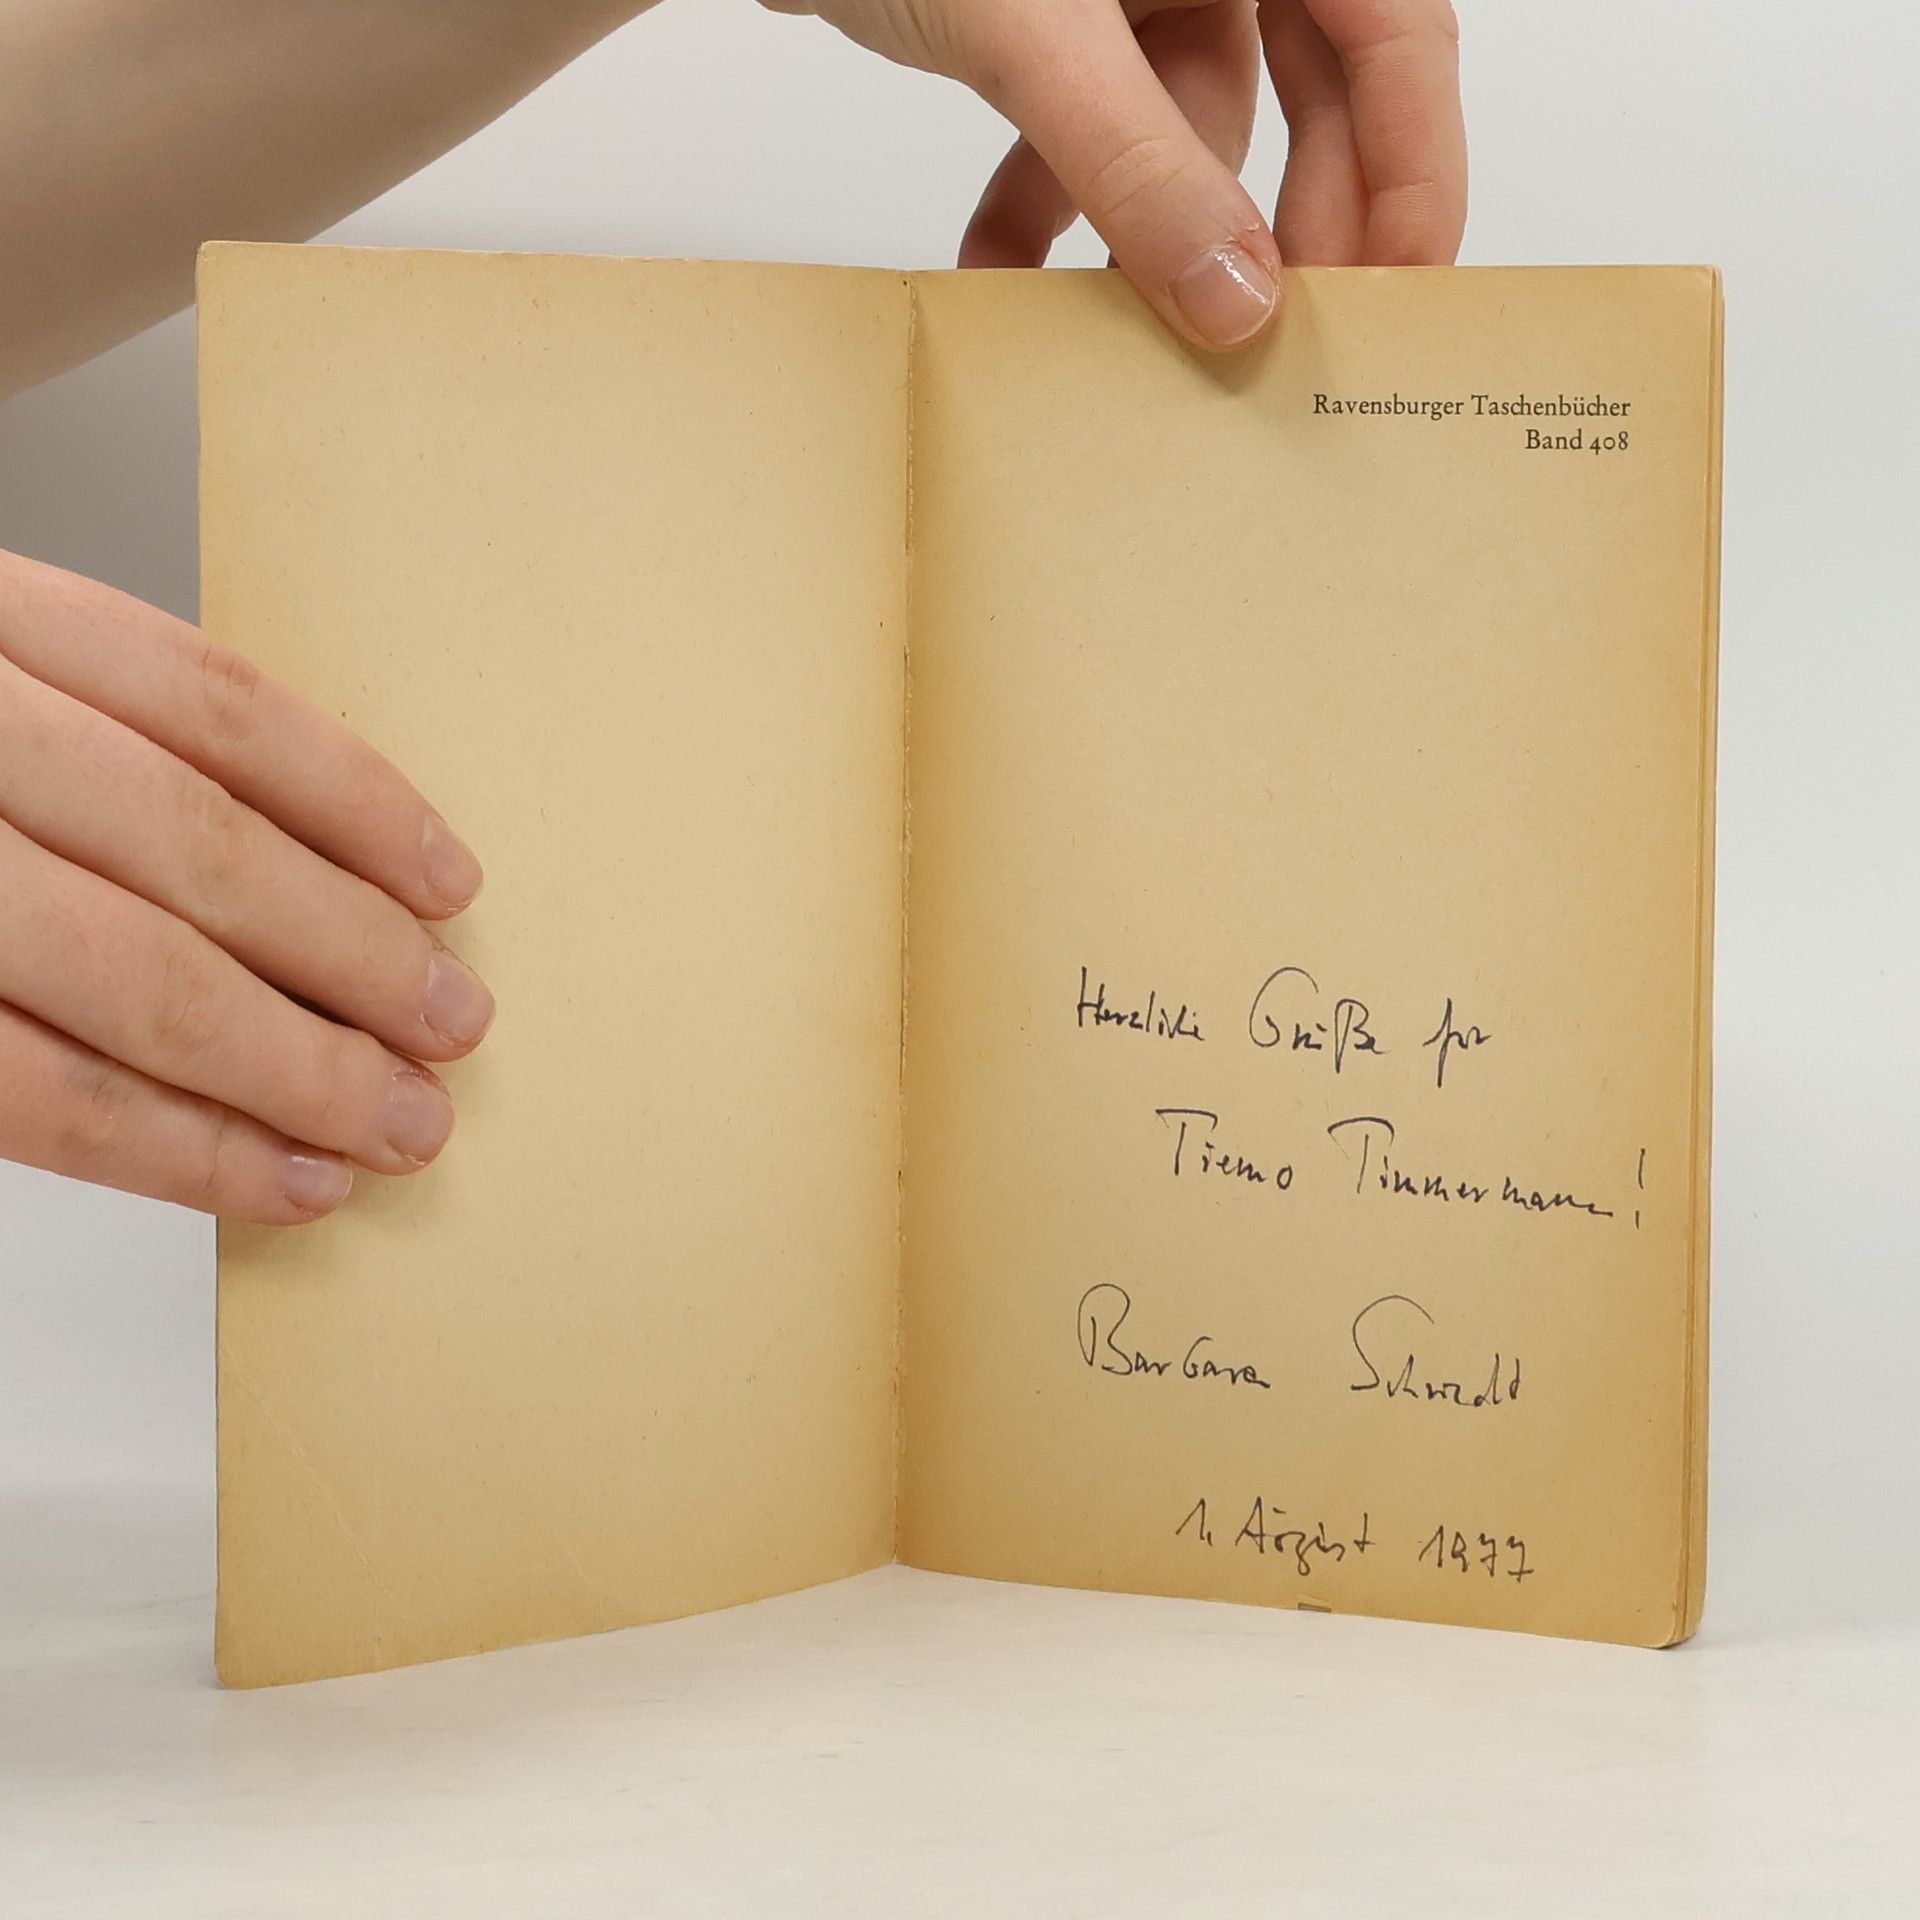 Ravensburger Taschenbücher
Band 408
Herzliche Grüße for
Tiemo Timmermann!
Barbara
1. August 1977